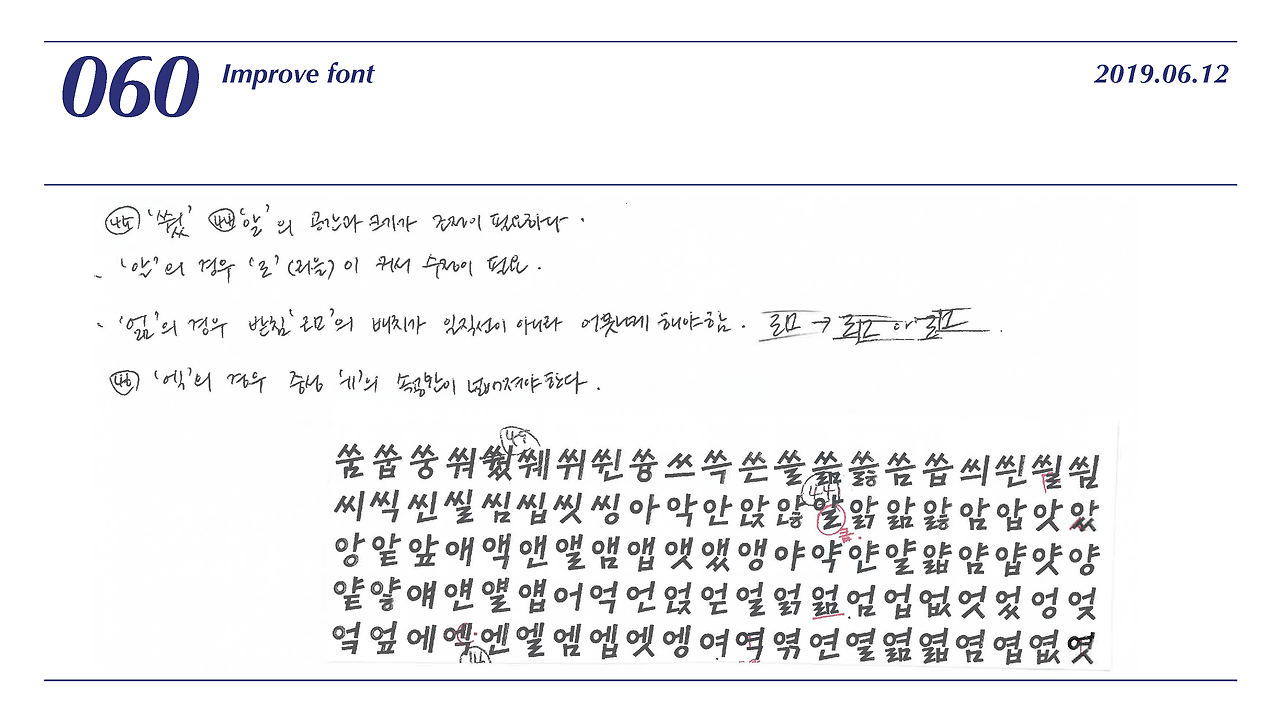 060 Improve font 2019.06.12
㊺ '쓌' ㊹ '알'의 공간과 크기가 조정이 필요하다.
- '알'의 경우 'ㄹ' (리을)이 커서 수정이 필요.
· '얾'의 경우 받침 'ㄹㅁ'의 배치가 일직선이 아니라 어긋나게 해야함. ㄹㅁ → ㄹㅁ or ㄹㅁ.
㊻ '엑'의 경우 중성 'ㅔ'의 속공간이 넓어져야한다.
45
씀 씁 씅 쒀 쒔 쒜 쒸 쒼 쓩 쓰 쓱 쓴 쓸 쓺 쓿 씀 씁 씌 씐 씔 씸
44
씨 씩 씬 씰 씸 씹 씻 씽 아 악 안 앉 않 알 앍 앎 앓 암 압 앗 았
큼.
앙 앝 앞 애 액 앤 앨 앰 앱 앳 앴 앵 야 약 얀 얄 얇 얌 얍 얏 양
얕 얗 얘 얜 얠 얩 어 억 언 얹 얻 얼 얽 얾 엄 업 없 엇 었 엉 엊
엌 엎 에 엑 엔 엘 엠 엡 엣 엥 여 역 엮 연 열 엶 엷 염 엽 엾 엿